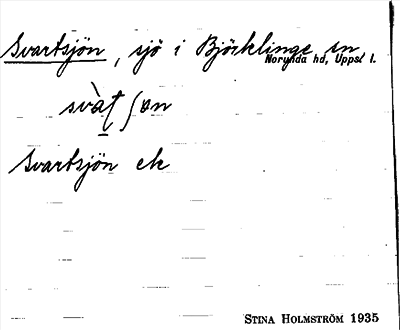 Svartsjön, sjö i Björklinge sn
Norunda hd, Upps. l.
Svartsjön ek
STINA HOLMSTRÖM 1935